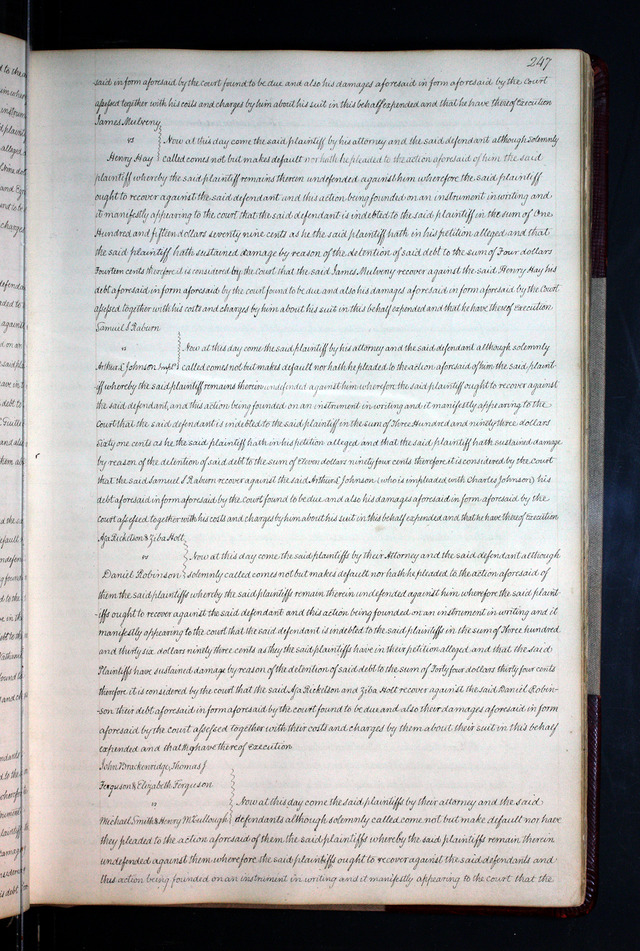 247
said in form aforesaid by the court found to be due and also his damages aforesaid in form aforesaid by the court
assessed together with his costs and charges by him about his suit in this behalf expended and that he have thereof Execution
James Mulveny
vs Now at this day come the said plaintiff by his attorney and the said defendant although solemnly
Henry Hay called comes not but makes default nor hath he pleaded to the action aforesaid of him the said
plaintiff whereby the said plaintiff remains therein undefended against him wherefore the said plaintiff
ought to recover against the said defendant and this action being founded on an instrument in writing and
it manifestly appearing to the court that the said defendant is indebted to the said plaintiff in the sum of One
Hundred and fifteen dollars seventy nine cents as he the said plaintiff hath in his petition alleged and that
the said plaintiff hath sustained damage by reason of the detention of said debt to the sum of Four dollars
Fourteen cents therefore it is considered by the Court that the said James Mulveny recover against the said Henry Hay his
debt aforesaid in form aforesaid by the court found to be due and also his damages aforesaid in form aforesaid by the Court
assessed together with his costs and charges by him about his suit in this behalf expended and that he have thereof Execution
Samuel S Raburn
vs Now at this day come the said plaintiff by his attorney and the said defendant although solemnly
Arthur L Johnson Impl called comes not but makes default nor hath he pleaded to the action aforesaid of him the said plaint-
iff whereby the said plaintiff remains therein undefended against him wherefore the said plaintiff ought to recover against
the said defendant, and this action being founded on an instrument in writing and it manifestly appearing to the
Court that the said defendant is indebted to the said plaintiff in the sum of Three Hundred and ninety three dollars
Sixty one cents as he the said plaintiff hath in his petition alleged and that the said plaintiff hath sustained damage
by reason of the detention of said debt to the sum of Eleven dollars ninety four cents therefore it is considered by the court
that the said Samuel S Raburn recover against the said Arthur L Johnson (who is impleaded with Charles Johnson) his
debt aforesaid in form aforesaid by the court found to be due and also his damages aforesaid in form aforesaid by the
court assessed together with his costs and charges by him about his suit in this behalf expended and that he have thereof Execution
Asa Rickelson & Ziba Holt
vs Now at this day come the said plaintiffs by their Attorney and the said defendant although
Daniel Robinson solemnly called comes not but makes default nor hath he pleaded to the action aforesaid of
them the said plaintiffs whereby the said plaintiffs remain therein undefended against him wherefore the said plaint
-iffs ought to recover against the said defendant and this action being founded on an instrument in writing and it
manifestly appearing to the court that the said defendant is indebted to the said plaintiffs in the sum of Three hundred
and thirty six dollars ninety three cents as they the said plaintiffs have in their petition alleged and that the said
Plaintiffs have sustained damage by reason of the detention of said debt to the sum of Forty four dollars thirty four cents
therefore it is considered by the court that the said Asa Rickelson and Ziba Holt recover against the said Daniel Robin-
-son their debt aforesaid in form aforesaid by the court found to be due and also their damages aforesaid in form
aforesaid by the court assessed together with their costs and charges by them about their suit in this behalf
expended and that they have thereof Execution
John Brackenridge, Thomas J
Ferguson & Elizabeth Ferguson
vs Now at this day come the said plaintiffs by their attorney and the said
Michael Smith & Henry McCullough defendants although solemnly called come not but make default nor have
they pleaded to the action aforesaid of them the said plaintiffs whereby the said plaintiffs remain therein
undefended against them wherefore the said plaintiffs ought to recover against the said defendants and
this action being founded on an instrument in writing and it manifestly appearing to the court that the